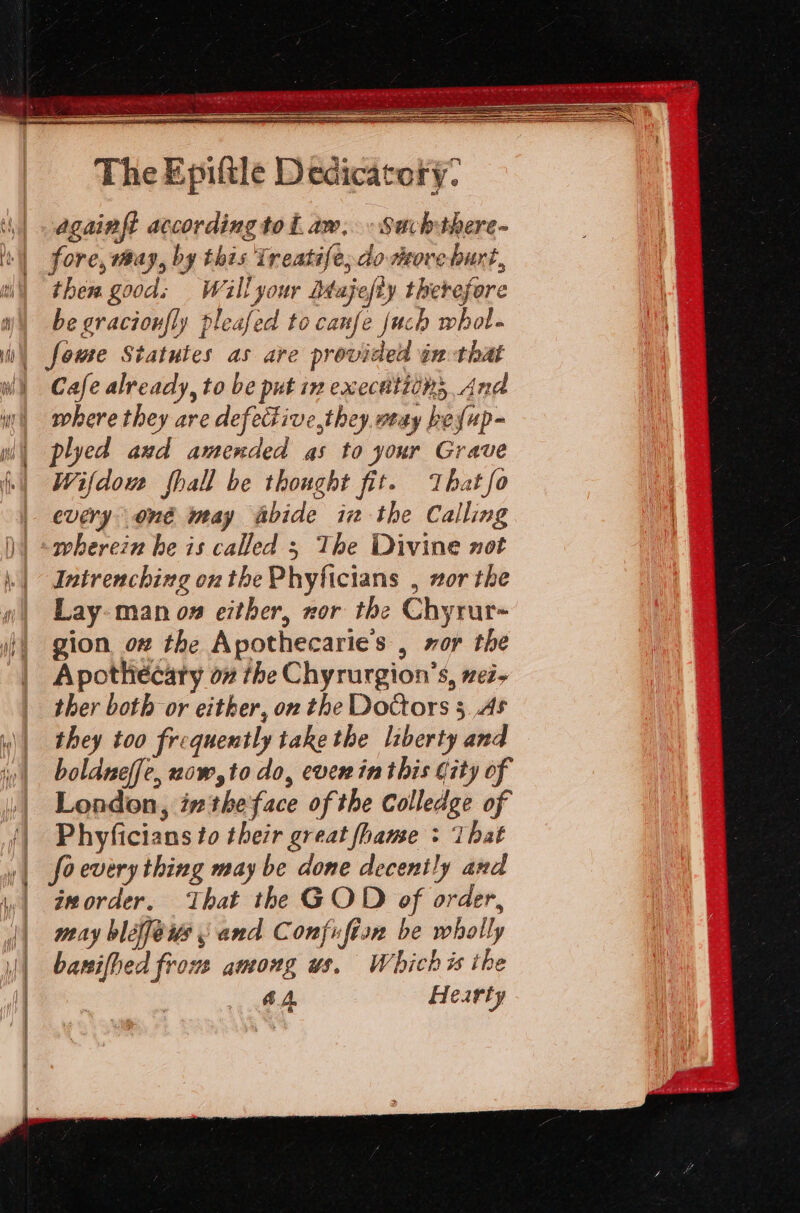 The Epiſtle Dedicatory.
againſt according to Law. Such there-
fore, may, by this Treatiſe, do more hurt,
then good; Will your Majeſty therefore
be graciouſly pleaſed to cauſe ſuch whol-
ſome Statutes as are provided in that
Caſe already, to be put in execution; And
where they are defective, they may be ſup-
plyed and amended as to your Grave
Wiſdom ſhall be thought fit. That ſo
every one may abide in the Calling
wherein he is called; The Divine not
Intrenching on the Phyſicians, nor the
Lay-man on either, nor the Chyrur-
gion on the Apothecarie's, nor the
Apothecary on the Chyrurgion's, nei-
ther both or either, on the Doctors; As
they too frequently take the liberty and
boldneſſe, now, to do, even in this City of
London, in the face of the Colledge of
Phyſicians to their great ſhame: That
ſo every thing may be done decently and
in order. That the GOD of order,
may bleſſe us, and Confuſion be wholly
baniſhed from among us. Which is the
a 4 Hearty